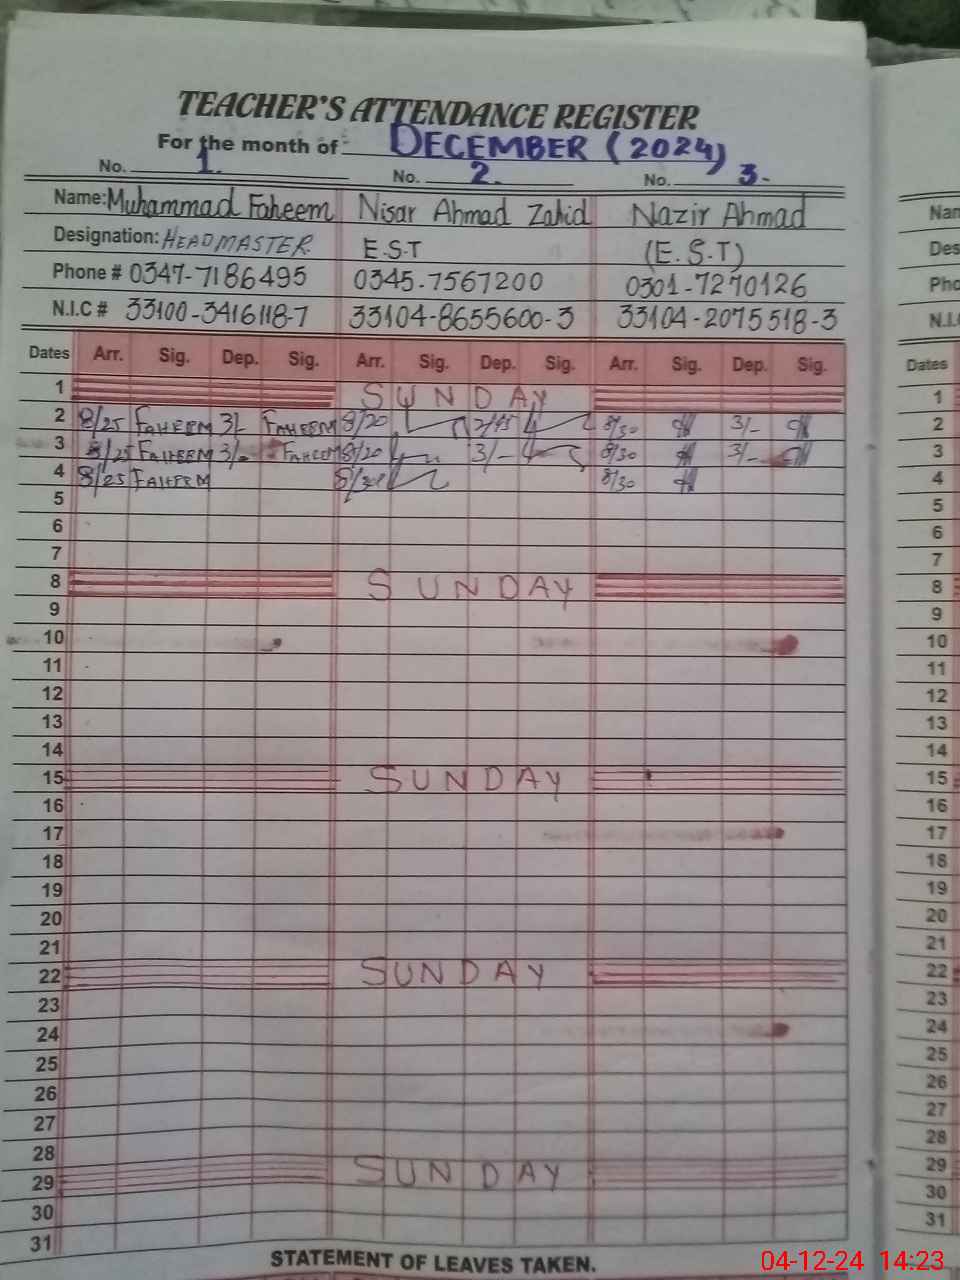 TEACHER'S ATTENDANCE REGISTER
For the month of DECEMBER (2024)
No. 1. No. 2. No. 3.
Name: Muhammad Faheem Nisar Ahmad Zahid Nazir Ahmad Nan
Designation: HEADMASTER E.S.T (E.S.T) Des
Phone # 0347-7186495 0345-7567200 0301-7270126 Pho
N.I.C # 33100-3416118-7 33104-8655600-3 33104-2075518-3 N.I.
Dates Arr. Sig. Dep. Sig. Arr. Sig. Dep. Sig. Arr. Sig. Dep. Sig. Dates
1 SUNDAY 1
2 8/25 FAHEEM 3/- FAHEEM 8/20 2/45 8/30 3/- 2
3 8/25 FAHEEM 3/- FAHEEM 8/20 3/- 8/30 3/- 3
4 8/25 FAHEEM 8/30 4
5 5
6 6
7 7
8 SUNDAY 8
9 9
10 10
11 11
12 12
13 13
14 14
15 SUNDAY 15
16 16
17 17
18 18
19 19
20 20
21 21
22 SUNDAY 22
23 23
24 24
25 25
26 26
27 27
28 28
29 SUNDAY 29
30 30
31 31
STATEMENT OF LEAVES TAKEN.
04-12-24 14:23